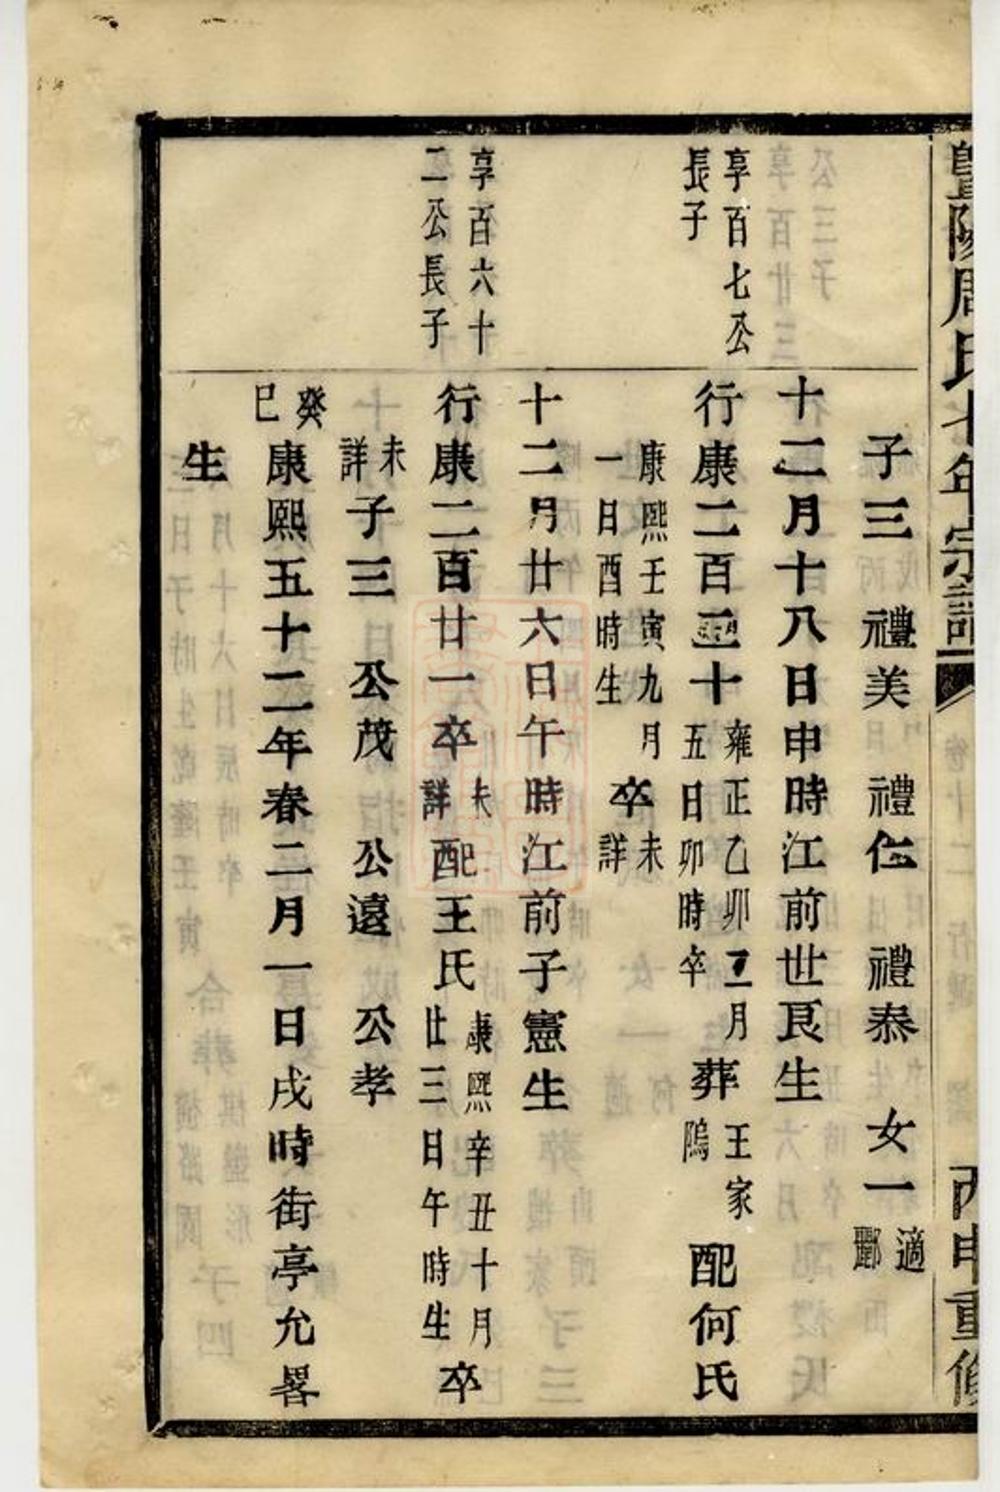 暨陽周氏 年宗譜 丙申重修
子三 禮美 禮仁 禮泰 女一 適酈
十二月十八日申時江前世良生
享百七公
長子
行康二百 十 雍正乙卯 月五日卯時卒 葬 王家塢 配何氏
康熙壬寅九月一日酉時生 卒 未詳
十二月廿六日午時江前子憲生
享百六十
二公長子
行康二百廿一卒 未詳 配王氏 康熙辛丑十月廿三日午時生 卒
未詳 子三 公茂 公遠 公孝
癸巳 康熙五十二年春二月一日戌時街亭允畧
生